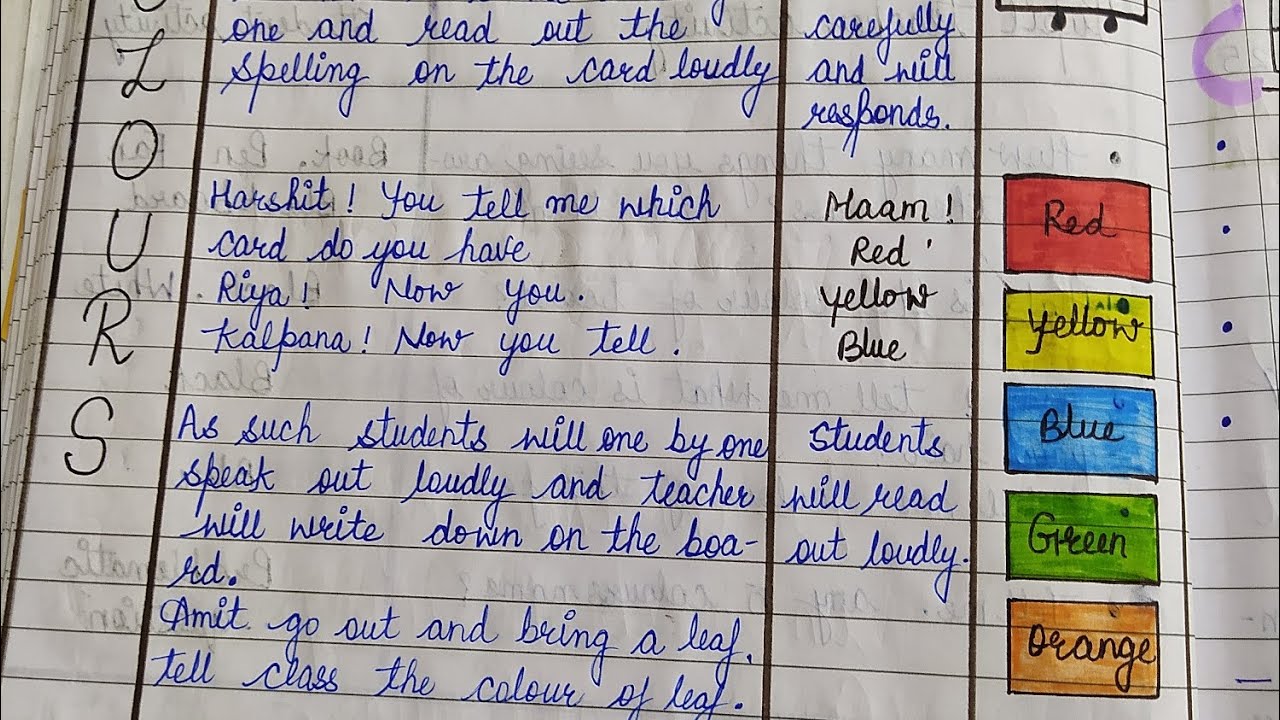 L
O
U
R
S
one and read out the
spelling on the card loudly
Harshit! You tell me which
card do you have
Riya! Now you.
Kalpana! Now you tell.
As such students will one by one
speak out loudly and teacher
will write down on the boa-
rd.
Amit go out and bring a leaf.
tell class the colour of leaf.
carefully
and will
responds.
Maam!
Red
Yellow
Blue
Students
will read
out loudly.
Red
Yellow
Blue
Green
Orange